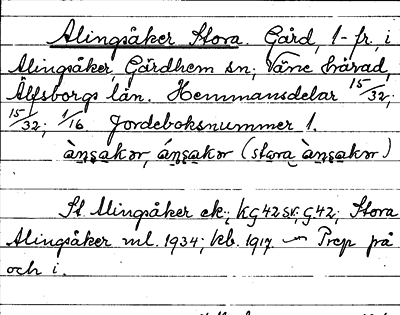 Alingsåker Stora. Gård, 1-fr., i
Alingsåker, Gärdhem sn; Väne härad,
Älfsborgs län. Hemmansdelar 15/32;
15/32; 1/16. Jordeboksnummer 1.
àŋsakər, áŋsakər (stora àŋsakər)
St. Alingsåker ek.; kG42sv; G42; Stora
Alingsåker ml. 1934; kb. 1917. — Prep på
och i.